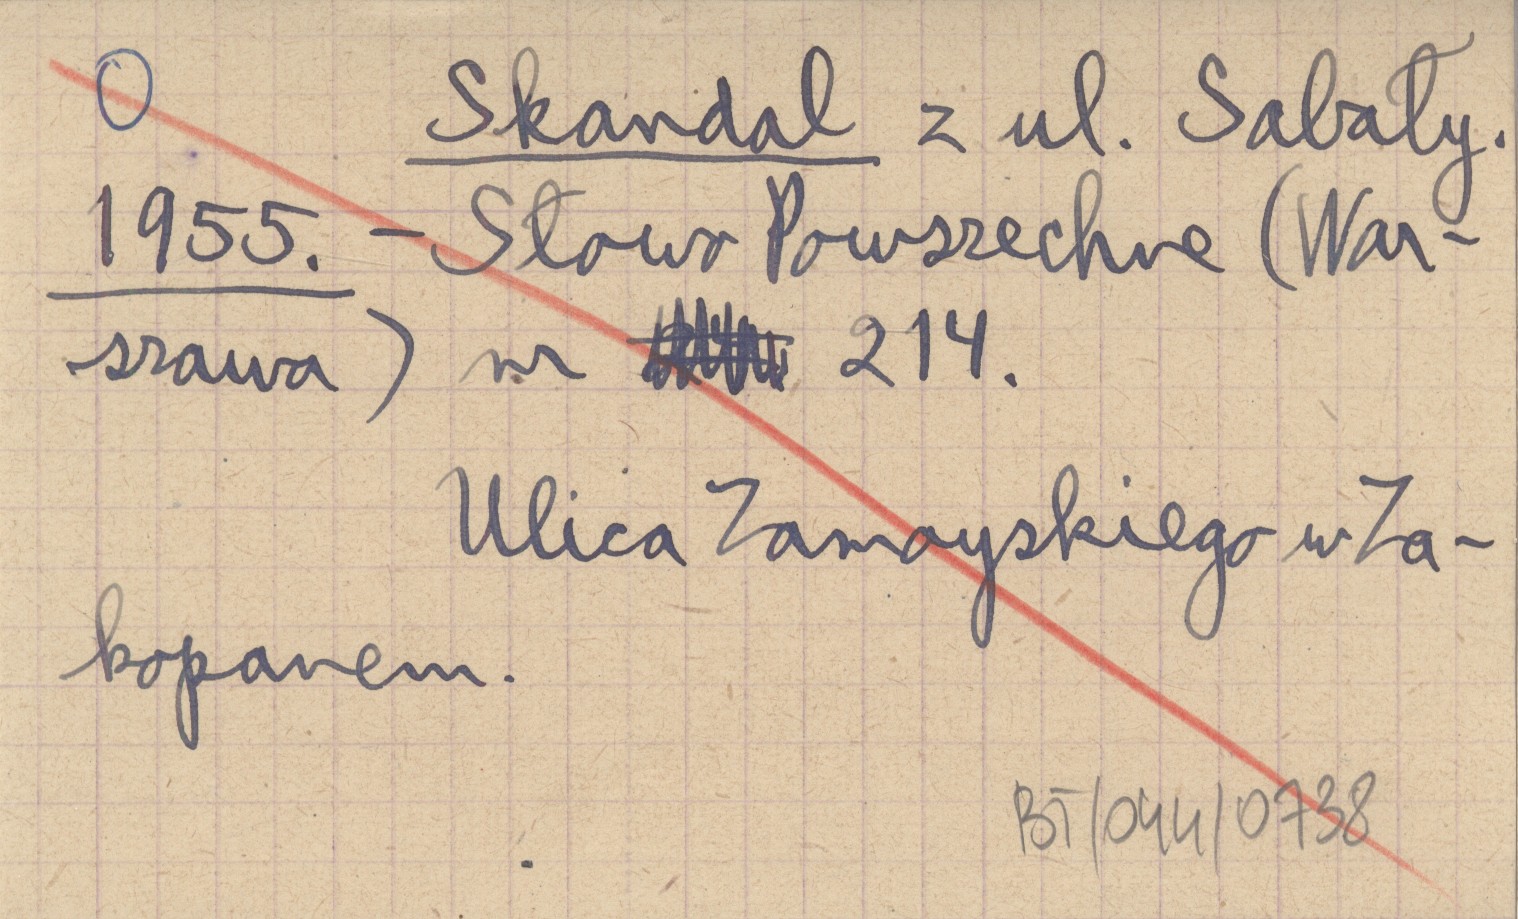 O Skandal z ul. Sabały.
1955. - Słowo Powszechne (War-
szawa) nr 214.
Ulica Zamoyskiego w Za-
kopanem.
BT/044/0738